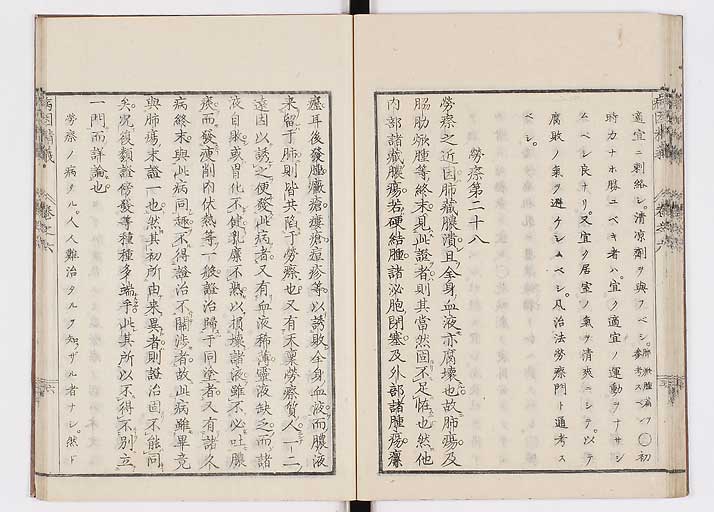 適宜ニ刺絡シ。清凉劑ヲ與フベシ。肺焮腫篇ヲ參考スベシ〇初
時力ナホ勝ユベキ者ハ。宜ク適宜ノ運動ヲナサシ
ムベシ良ナリ。又宜ク居室ノ氣ヲ清爽ニシテ。以テ
腐敗ノ氣ヲ避ケシムベシ。凡治法勞瘵門ト通考ス
ベシ。
勞瘵第二十八
勞瘵之近因肺藏膿潰且全身血液亦腐壞也故肺瘍及
脇肋焮腫等終末見此證者則其當然固不足怪也然他
內部諸藏膿瘍若硬結腫諸泌胞閉塞及外部諸腫瘍癩
瘡耳後發腫黴瘡痘疹等以誘敗全身血液而膿液
來留于肺則皆共陷于勞瘵也又有禾稟勞瘵質人一二
遠因以誘之便發此病者又有血液稀薄靈液缺乏而諸
液自敗或胃化不健乳糜不熟以損壞諸液雖不必吐膿
痰而發瘦削內伏熱等一般證治歸于同塗者又有諸久
病終末與此病同趣不得證治不關涉者故此病雖畢竟
與肺瘍末證一也然其初所由来異者則證治固不能同
矣況復類證傍發等種種多端乎此其所以不得不別立
一門而詳論也
勞瘵ノ病タル。人人難治タルヲ知ザル者ナシ。然ト
病因精義
卷之六
六